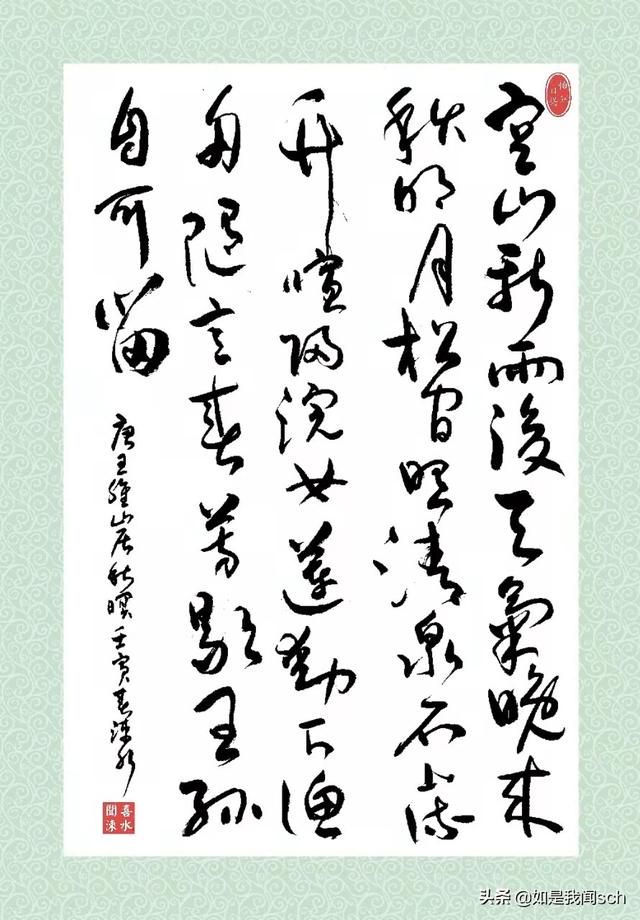 空山新雨後天氣晚來
秋明月松間照清泉石上流
竹喧歸浣女蓮動下漁
舟隨意春芳歇王孫
自可留
唐王維山居秋暝壬寅春
喜水
聞涑
头条 @如是我闻sch